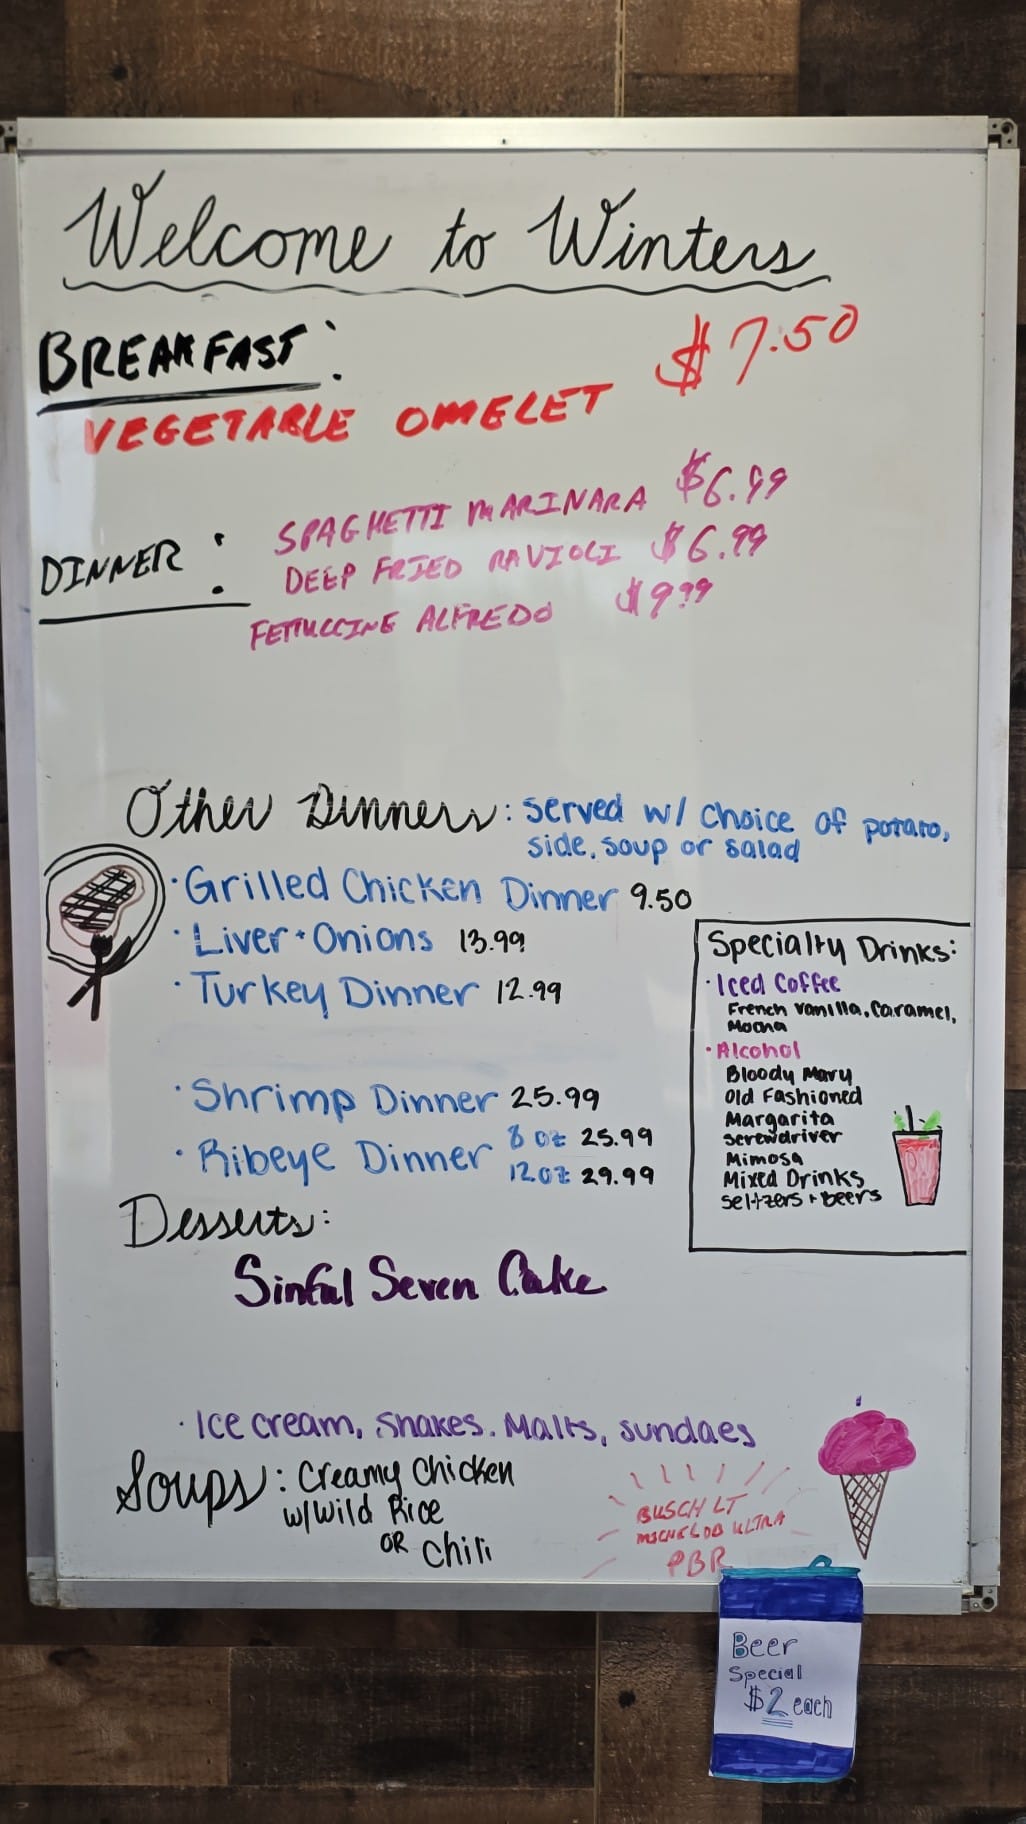 Welcome to Winters
BREAKFAST:
$7.50
VEGETABLE OMELET
DINNER:
SPAGHETTI MARINARA $6.99
DEEP FRIED RAVIOLI $6.99
FETTUCCINE ALFREDO $9.99
Other Dinners: served w/ choice of potato,
side, soup or salad
· Grilled Chicken Dinner 9.50
· Liver + Onions 13.99
· Turkey Dinner 12.99
· Shrimp Dinner 25.99
· Ribeye Dinner 8 oz 25.99
12 oz 29.99
Specialty Drinks:
· Iced Coffee
French Vanilla, Caramel,
Mocha
· Alcohol
Bloody Mary
Old Fashioned
Margarita
screwdriver
Mimosa
Mixed Drinks
seltzers + Beers
Desserts:
Sinful Seven Cake
· Ice cream, Shakes. Malts, sundaes
Soups: Creamy Chicken
w/ Wild Rice
OR Chili
BUSCH LT
MICHELOB ULTRA
PBR
Beer
Special
$2 each